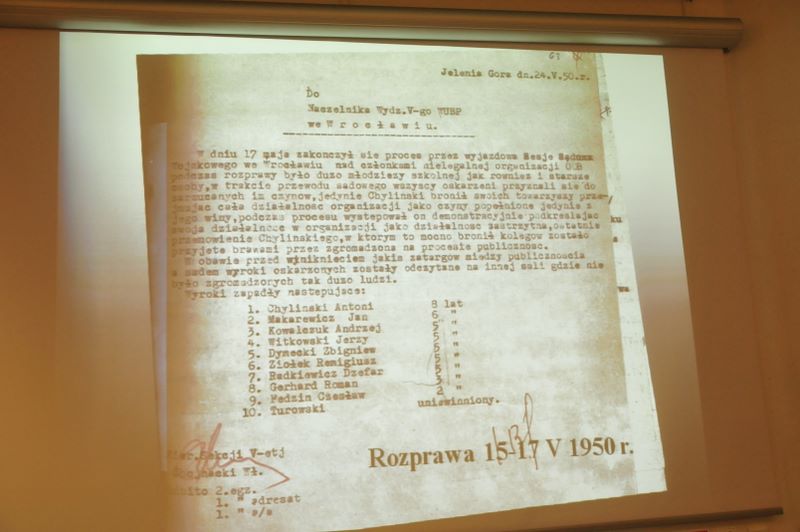 Jelenia Gora dn.24.V.50.r.
Do
Naczelnika Wydz.V-go WUBP
we W r o c ł a w i u.
W dniu 17 maja zakonczył sie proces przez wyjazdowa Sesje Sądu
Wojskowego we Wrocławiu nad członkami nielegalnej organizacji
podczas rozprawy było duzo młodziezy szkolnej jak rowniez i starsze
osoby,w trakcie przewodu sadowego wszyscy oskarzeni przyznali sie do
zarzucanych im czynow,jedynie Chylinski bronił swoich towarzyszy
cała działalnosc organizacji jako czyny popełnione jedynie z
jego winy,podczas procesu wystepował on demonstracyjnie podkreslajac
swoja działalnosc w organizacji jako działalnosc zaszczytna,ostatnie
przemowienie Chylinskiego,w ktorym to mocno bronił kolegow zostało
przyjete brawami przez zgromadzona na procesie publicznosc.
W obawie przed wyniknieciem jakis zatargow miedzy publicznoscia
a sadem wyroki oskarzonych zostały odczytane na innej sali gdzie nie
było zgromadzonych tak duzo ludzi.
Wyroki zapadły nastepujace:
1. Chylinski Antoni 8 lat
2. Makarewicz Jan 6 "
3. Kowalczuk Andrzej 5 "
4. Witkowski Jerzy 5 "
5. Dymecki Zbigniew 5 "
6. Ziołek Remigiusz 5 "
7. Radkiewicz Dzefar "
8. Gerhard Roman "
9. Fedzin Czesław 2 "
10. Turowski uniewinniony.
Kier.Sekcji V-etj
Wł.
Odbito 2.egz.
1. " adresat
1. " a/a
Rozprawa 15-17 V 1950 r.